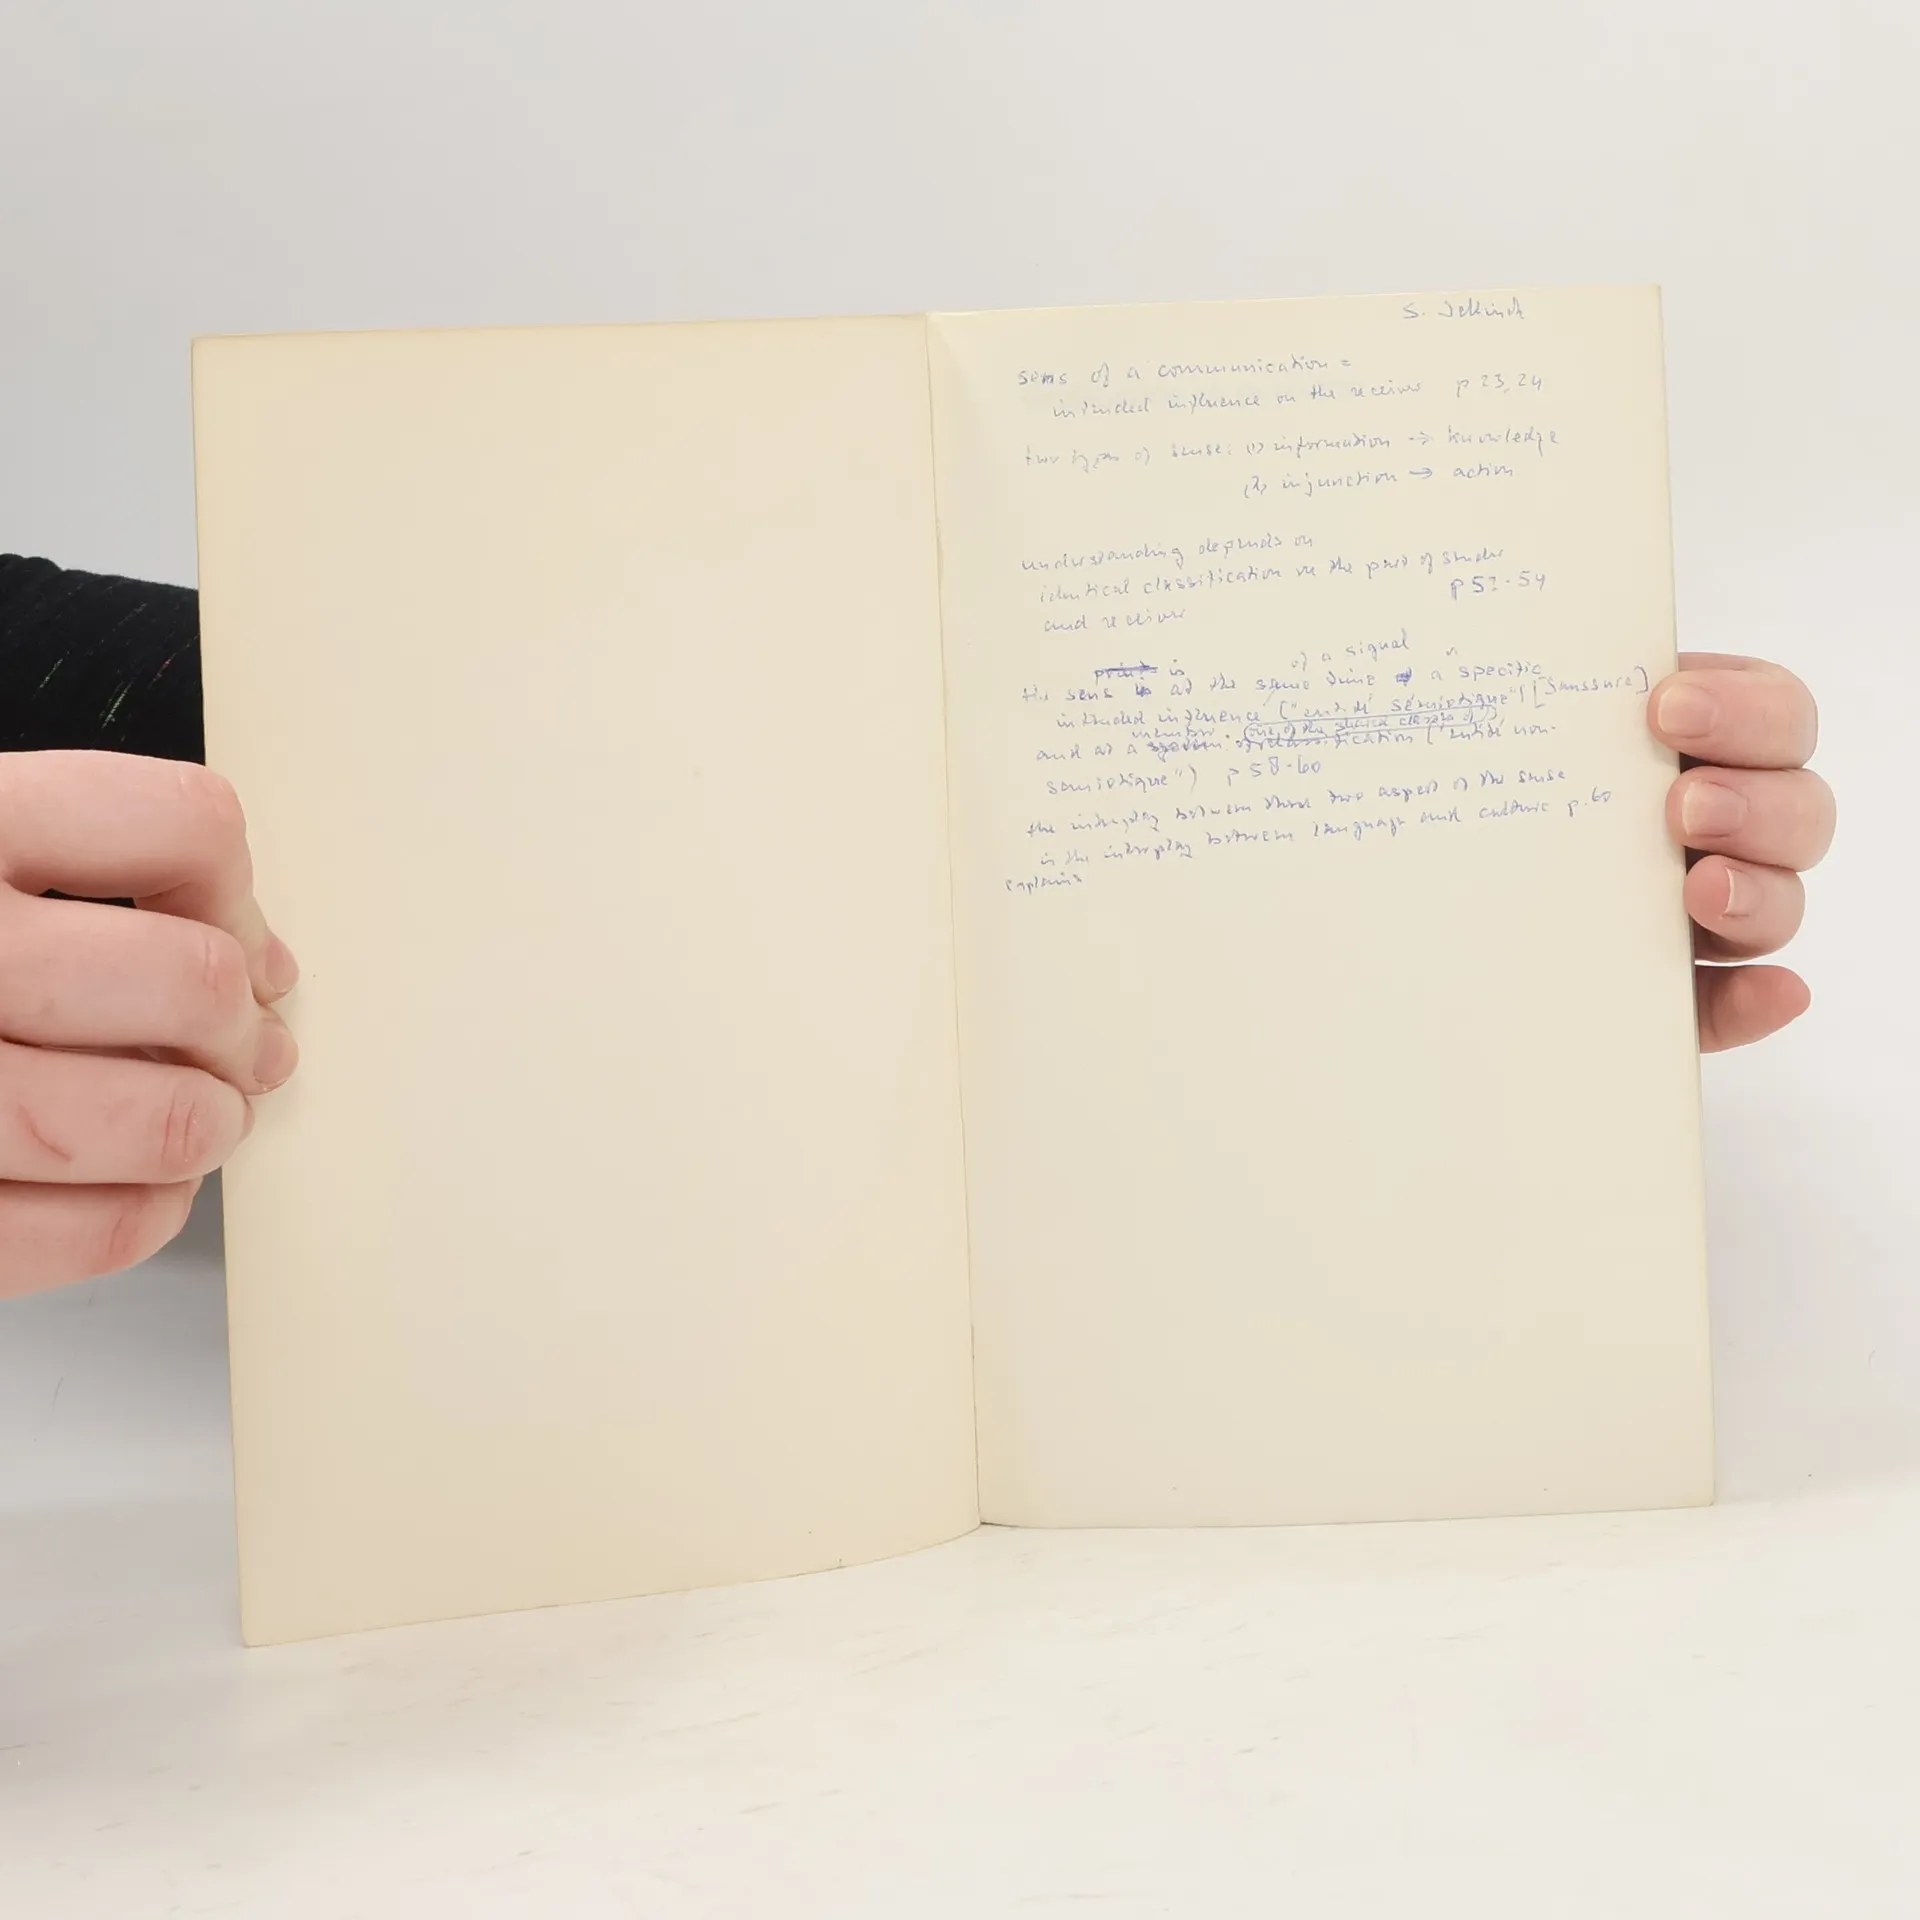 S.
sens of a communication =
intended influence on the receiver p 23, 24
two types of sense: (1) information → knowledge
(2) injunction → action
understanding depends on
identical classification on the part of sender
and receiver
p 52-54
is of a signal
the sens at the same time a specific
intended influence ("entité sémiotique") [Saussure]
member one of the shared classes of
and as a classification ("entité non-
semiotique") p 58-60
the interplay between these two aspect of the sense
is the interplay between language and culture p. 60
explains